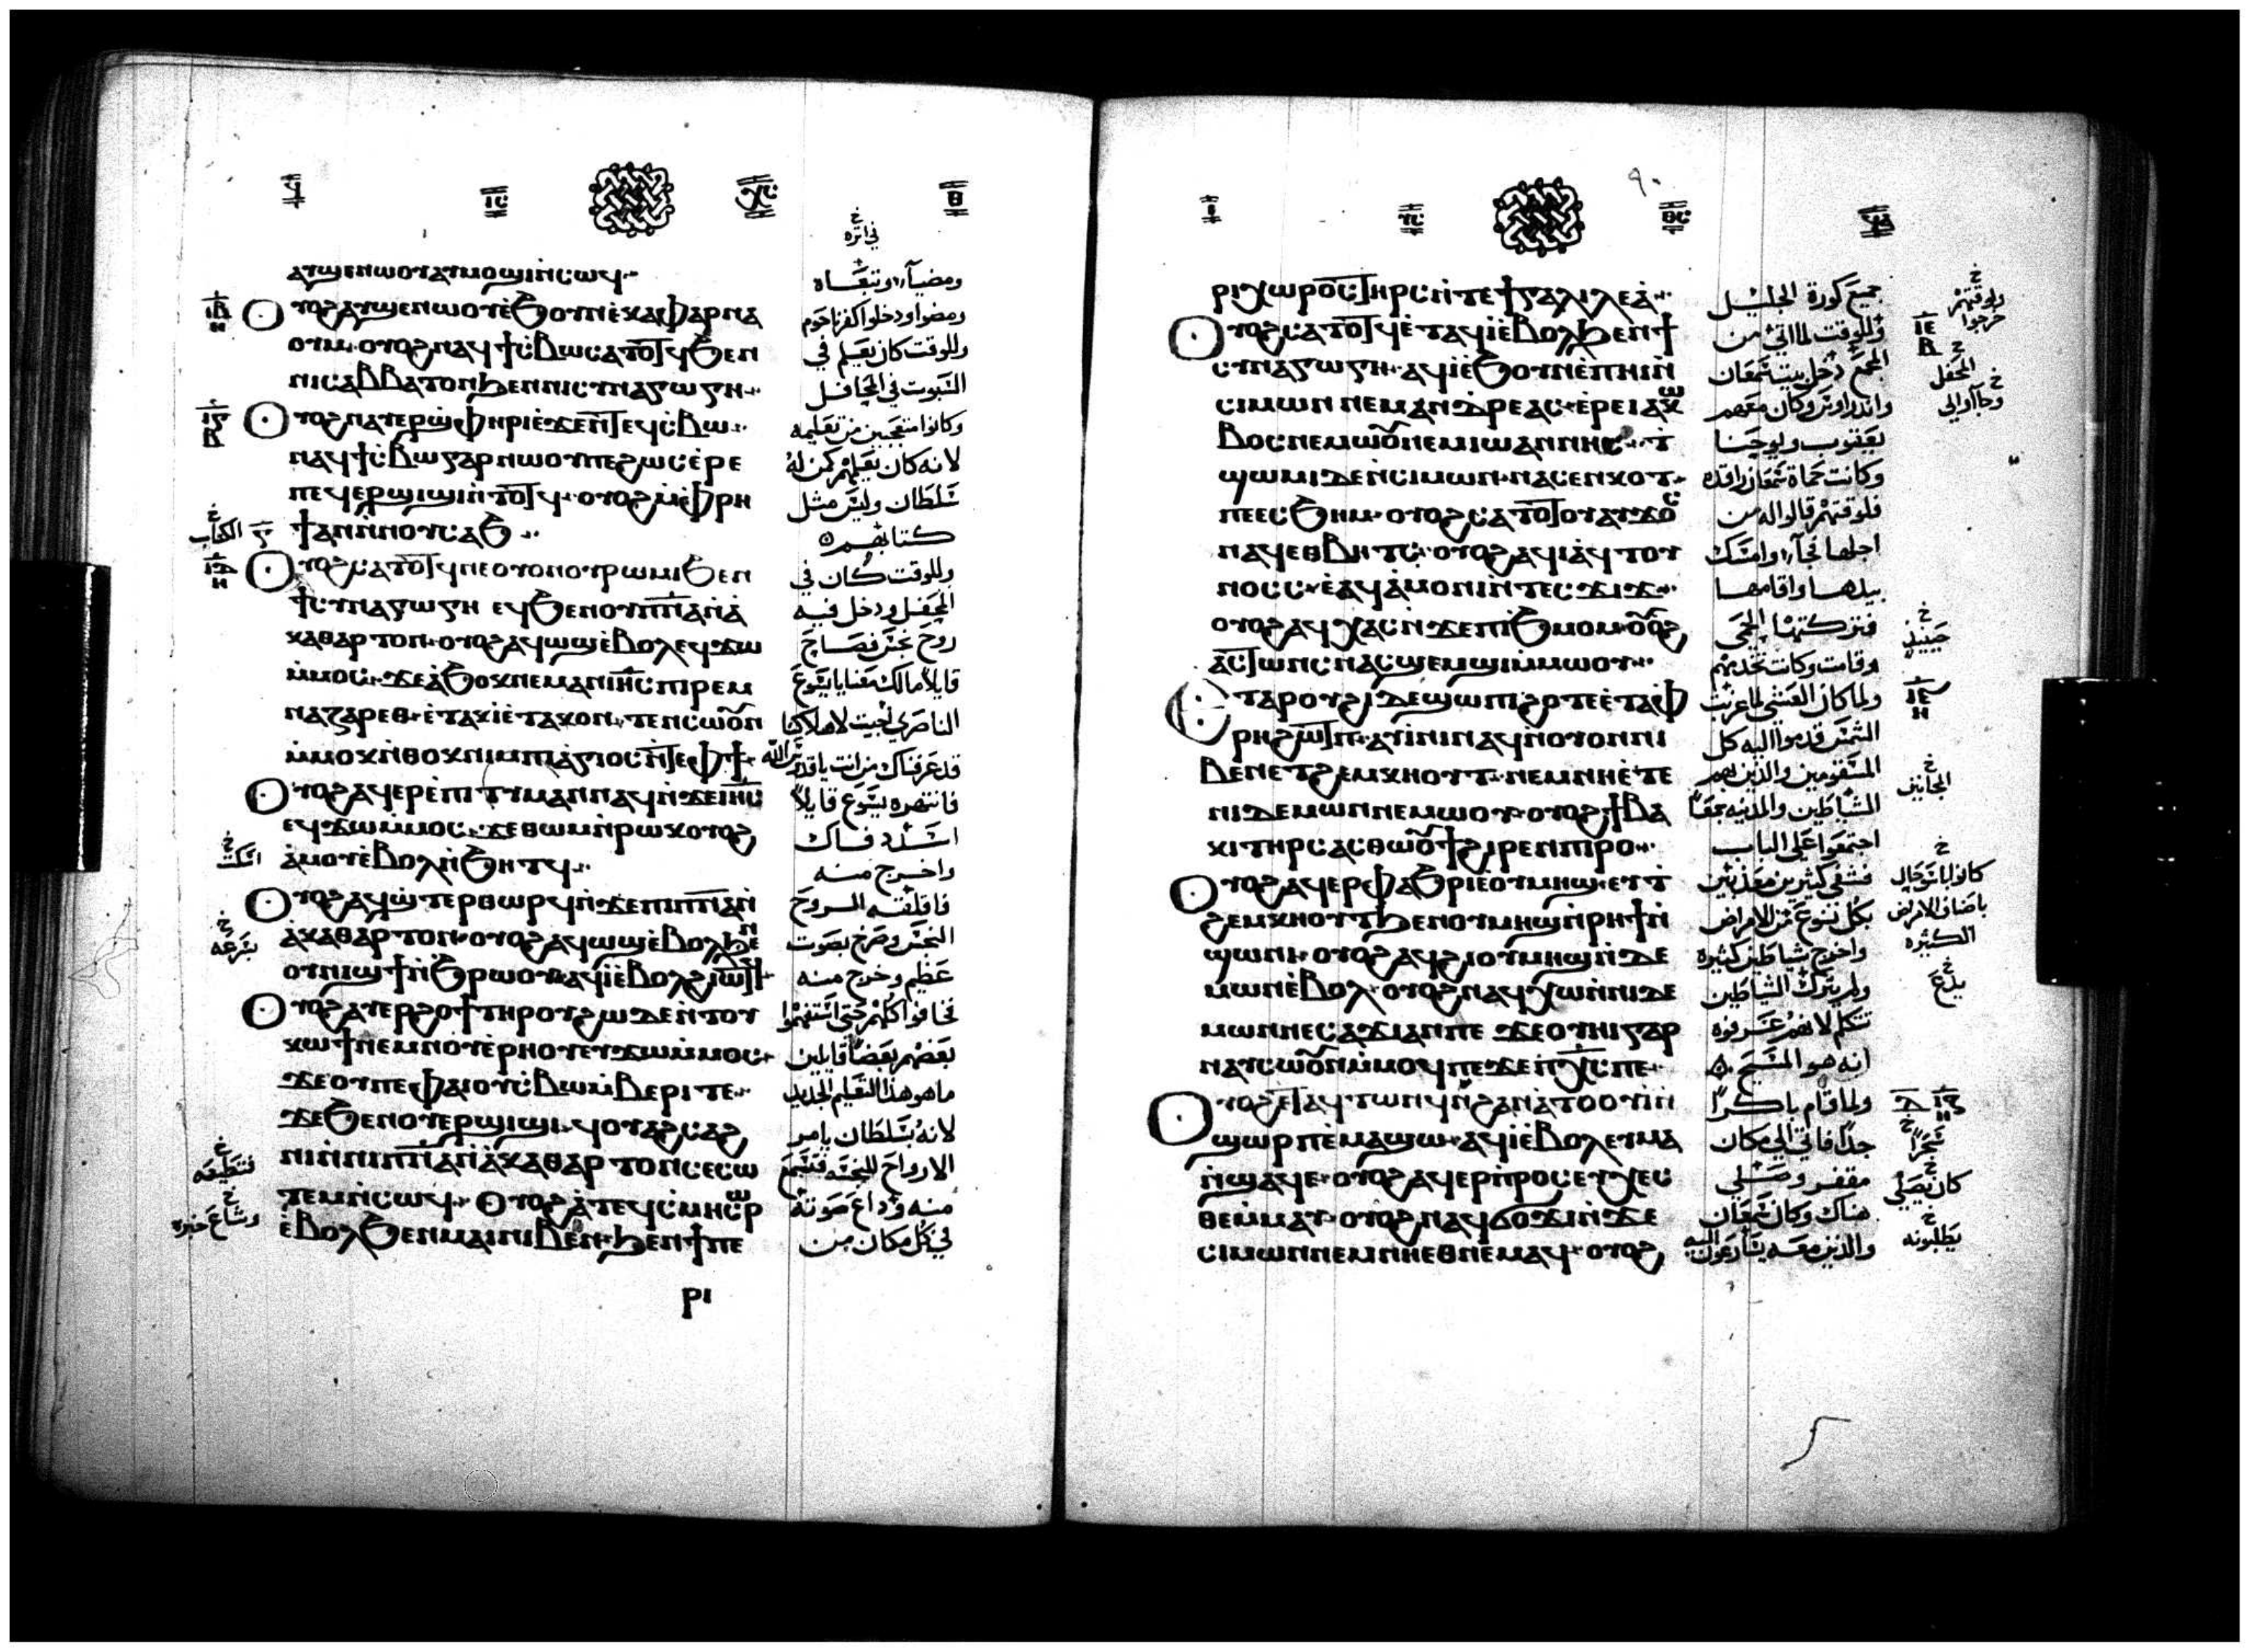 ⲁⲩϣⲉⲛⲱⲟⲩⲁⲩⲙⲟϣⲓⲛ̀ⲥⲱϥ
ⲟⲩⲟϩⲁⲩϣⲉⲛⲱⲟⲩⲉ̀ϧⲟⲩⲛⲉ̀ⲕⲁⲫⲁⲣⲛⲁ
ⲟⲩⲙ ⲟⲩⲟϩⲛⲁϥϯⲥ̀ⲃⲱⲥⲁⲧⲟⲧϥϧⲉⲛ
ⲛⲓⲥⲁⲃⲃⲁⲧⲟⲛϧⲉⲛⲛⲓⲥⲩⲛⲁⲅⲱⲅⲏ
ⲟⲩⲟϩⲛⲁⲩⲉⲣϣ̀ⲫⲏⲣⲓⲉ̀ϫⲉⲛⲧⲉϥⲥ̀ⲃⲱ
ⲛⲁϥϯⲥ̀ⲃⲱⲅⲁⲣⲛⲱⲟⲩⲡⲉϩⲱⲥⲉ̀ⲣⲉ
ⲡⲉϥⲉⲣϣⲓϣⲓⲛ̀ⲧⲟⲧϥ ⲟⲩⲟϩⲙ̀ⲫⲣⲏ
ϯⲁⲛⲛ̀ⲛⲟⲩⲥⲁϧ
ⲟⲩⲟϩⲥⲁⲧⲟⲧϥⲛⲉⲟⲩⲟⲛⲟⲩⲣⲱⲙⲓϧⲉⲛ
ϯⲥⲩⲛⲁⲅⲱⲅⲏ ⲉϥϧⲉⲛⲟⲩⲡⲛ̅ⲁ̅ⲛ̀ⲁ̀
ⲕⲁⲑⲁⲣⲧⲟⲛ ⲟⲩⲟϩⲁϥⲱϣⲉ̀ⲃⲟⲗⲉϥϫⲱ
ⲙ̀ⲙⲟⲥ ϫⲉⲁ̀ϧⲟⲕⲛⲉⲙⲁⲛⲓⲏ̅ⲥ̅ⲡⲓⲣⲉⲙ
ⲛⲁⲍⲁⲣⲉⲑ ⲉ̀ⲧⲁⲕⲓⲉ̀ⲧⲁⲕⲟⲛ ⲧⲉⲛⲥⲱⲟⲩⲛ
ⲙ̀ⲙⲟⲕⲛ̀ⲑⲟⲕⲛⲓⲙⲡⲓⲁ̀ⲅⲓⲟⲥⲛ̀ⲧⲉⲫϯ
ⲟⲩⲟϩⲁϥⲉⲣⲉ̀ⲡⲓⲧⲩⲙⲁⲛⲛⲁϥⲛ̀ϫⲉⲓⲏ̅ⲥ̅
ⲉϥϫⲱⲙ̀ⲙⲟⲥ ϫⲉⲑⲱⲙⲛ̀ⲣⲱⲕⲟⲩⲟϩ
ⲁ̀ⲙⲟⲩⲉ̀ⲃⲟⲗⲛ̀ϧⲏⲧϥ
ⲟⲩⲟϩⲁϥϣ̀ⲧⲉⲣⲑⲱⲣϥⲛ̀ϫⲉⲡⲓⲡⲛ̅ⲁ̅ⲛ̀
ⲁ̀ⲕⲁⲑⲁⲣⲧⲟⲛ ⲟⲩⲟϩⲁϥⲱϣⲉ̀ⲃⲟⲗϧⲉⲛ
ⲟⲩⲛⲓϣϯⲛ̀ϧⲣⲱⲟⲩⲁϥⲓⲉ̀ⲃⲟⲗϩⲓⲱⲧϥ
ⲟⲩⲟϩⲁⲩⲉⲣϩⲟϯⲧⲏⲣⲟⲩϩⲱϫⲉⲛ̀ⲧⲟⲩ
ⲕⲱϯⲛⲉⲙⲛⲟⲩⲉ̀ⲣⲏⲟⲩⲉⲩϫⲱⲙ̀ⲙⲟⲥ
ϫⲉⲟⲩⲡⲉⲫⲁⲓⲟⲩⲥ̀ⲃⲱⲙ̀ⲃⲉⲣⲓⲧⲉ
ϫⲉϧⲉⲛⲟⲩⲉⲣϣⲓϣⲓ ϥⲟⲩⲁϩⲥⲁϩ
ⲛⲓⲛ̀ⲛⲓⲡⲛ̅ⲁ̅ⲛ̀ⲁ̀ⲕⲁⲑⲁⲣⲧⲟⲛⲥⲉⲥⲱ
ⲧⲉⲙⲛ̀ⲥⲱϥ ⲟⲩⲟϩⲁ̀ⲧⲉϥⲥ̀ⲙⲏⲥⲱⲣ
ⲉ̀ⲃⲟⲗϧⲉⲛⲙⲁⲓⲛⲓⲃⲉⲛ ϧⲉⲛϯⲡⲉ
ⲣⲓ
في اثره
ومضيآ وتبعاه
ومضوا ودخلوا كفرناحوم
وللوقت كان يعلم في
السبوت في المحافل
وكانوا متعجبين من تعليمه
لانه كان يعلمهم كمن له
سلطان وليس مثل
كتابهم
وللوقت كان في
المحفل ودخل فيه
روح نجس فصاح
قايلاً مالك معنا يايسوع
الناصري اجيت لاهلاكنا
قد عرفناك من انت ياقدوس الله
فانتهره يسوع قايلاً
اسدد فاك
واخرج منه
فاقلقته الروح
النجس وصرخ بصوت
عظيم وخرج منه
فخافوا كلهم حتى استفهموا
بعضهم بعضاً قايلين
ماهو هذا التعليم الجديد
لانه بسلطان يامر
الارواح النجسه فتسمع
منه وذاع صوته
في كل مكان من
الكتاب
بزعقه
فتطيعه
وشاع خبره
٩٠
ⲣⲓⲭⲱⲣⲟⲥⲧⲏⲣⲥⲛ̀ⲧⲉϯⲅⲁⲗⲓⲗⲉⲁ̀
ⲟⲩⲟϩⲥⲁⲧⲟⲧϥⲉ̀ⲧⲁϥⲓⲉ̀ⲃⲟⲗϧⲉⲛϯ
ⲥⲩⲛⲁⲅⲱⲅⲏ ⲁϥⲓⲉ̀ϧⲟⲩⲛⲉⲡⲏⲓⲛ̀
ⲥⲓⲙⲱⲛ ⲛⲉⲙⲁⲛⲇⲣⲉⲁⲥ ⲉⲣⲉⲓⲁⲕⲱ
ⲃⲟⲥⲛⲉⲙⲱⲟⲩⲛⲉⲙⲓⲱⲁⲛⲛⲏⲥ ⲧ
ϣⲱⲙⲓϫⲉⲛ̀ⲥⲓⲙⲱⲛ ⲛⲁⲥⲉⲛⲕⲟⲧ
ⲡⲉⲉⲥϧⲏⲙ ⲟⲩⲟϩⲥⲁⲧⲟⲧⲟⲩⲁⲩϫⲟⲥ
ⲛⲁϥⲉⲑⲃⲏⲧⲥ ⲟⲩⲟϩⲁϥⲓⲁϥⲧⲟⲩ
ⲛⲟⲥⲥ ⲉ̀ⲁϥⲁ̀ⲙⲟⲛⲓⲛ̀ⲧⲉⲥϫⲓϫ
ⲟⲩⲟϩⲁϥⲭⲁⲥⲛ̀ϫⲉⲡⲓϧⲙⲟⲙ ⲟⲩⲟϩ
ⲁⲥⲧⲱⲛⲥⲛⲁⲥϣⲉⲙϣⲓⲙ̀ⲙⲱⲟⲩ
ⲉⲧⲁⲣⲟⲩϩⲓⲇⲉϣⲱⲡⲓϩⲟⲧⲉⲉ̀ⲧⲁⲫ
ⲣⲏϩⲱⲧⲡ ⲁⲩⲓ̀ⲛⲓⲛⲁϥⲛ̀ⲟⲩⲟⲛⲛⲓ
ⲃⲉⲛⲉⲧϩⲉⲙⲕⲏⲟⲩⲧ ⲛⲉⲙⲛⲏⲉ̀ⲧⲉ
ⲛⲓⲇⲉⲙⲱⲛⲛⲉⲙⲱⲟⲩ ⲟⲩⲟϩϯⲃⲁ
ⲕⲓⲧⲏⲣⲥⲁⲥⲑⲱⲟⲩϯϩⲓⲣⲉⲛⲡⲓⲣⲟ
ⲟⲩⲟϩⲁϥⲉⲣⲫⲁϧⲣⲓⲉ̀ⲟⲩⲙⲏϣ ⲉⲩⲧ
ϩⲉⲙⲕⲏⲟⲩⲧϧⲉⲛⲟⲩⲙⲏϣⲛ̀ⲣⲏϯⲛ̀
ϣⲱⲛⲓ ⲟⲩⲟϩⲁϥϩⲓⲟⲩⲙⲏϣⲛ̀ⲇⲉ
ⲙⲱⲛⲉ̀ⲃⲟⲗ ⲟⲩⲟϩⲛⲁϥⲭⲱⲛ̀ⲛⲓⲇⲉ
ⲙⲱⲛⲛⲉⲥⲁϫⲓⲁⲛⲡⲉ ϫⲉⲟⲩⲏⲓⲅⲁⲣ
ⲛⲁⲩⲥⲱⲟⲩⲛⲙ̀ⲙⲟϥⲡⲉϫⲉⲡⲭ̅ⲥ̅ⲡⲉ
ⲟⲩⲟϩⲉⲧⲁϥⲧⲱⲛϥⲛ̀ϩⲁⲛⲁ̀ⲧⲟⲟⲩⲓⲛ̀
ϣⲱⲣⲡⲉ̀ⲙⲁϣⲱ ⲁϥⲓⲉ̀ⲃⲟⲗⲉⲩⲙⲁ
ⲛ̀ϣⲁϥⲉ ⲟⲩⲟϩⲁϥⲉⲣⲡ̀ⲣⲟⲥⲉⲩⲭⲉⲥ
ⲑⲉⲙ̀ⲙⲁⲩ ⲟⲩⲟϩⲛⲁϥϭⲟϫⲓⲛ̀ϫⲉ
ⲥⲓⲙⲱⲛⲛⲉⲙⲛⲏⲉⲑⲛⲉⲙⲁϥ ⲟⲩⲟϩ
جميع كورة الجليل
وللوقت لما اتى من
المجمع دخل بيت سمعان
واندراوس وكان معهم
يعقوب ويوحنا
وكانت حماة سمعان راقده
فلوقتهم قالوا له من
اجلها فجآ وامسك
بيدها واقامها
فتركتها الحمى
وقامت وكانت تخدمهم
ولما كان العشى لما غربت
الشمس قدموا اليه كل
المسقومين والذين بهم
الشياطين والمدينه جمعا
اجتمعوا على الباب
فشفى كثيرين معذبين
بكل نوع من الامراض
واخرج شياطين كثيره
ولم يترك الشياطين
تتكلم لانهم عرفوه
انه هو المسيح
ولما قام باكراً
جداً فاتى الى مكان
مقفر وصلى
هناك وكان سمعان
والذين معه يسارعون اليه
ولوقتهم
خرجوا
المحفل
وجآ الى
حينيذ
المجانين
كانوا باسؤ حال
باصناف الامراض
الكثيره
يدع
سحراً
كان يصلي
يطلبونه